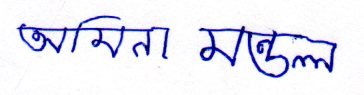 অমিতা মণ্ডল